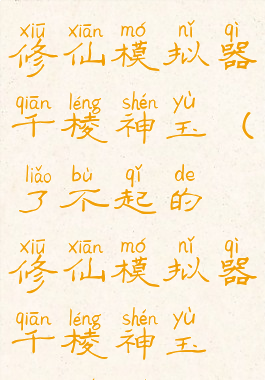 xiū xiān mó nǐ qì
修仙模拟器
qiān léng shén yù
千棱神玉（
liǎo bù qǐ de
了不起的
xiū xiān mó nǐ qì
修仙模拟器
qiān léng shén yù
千棱神玉